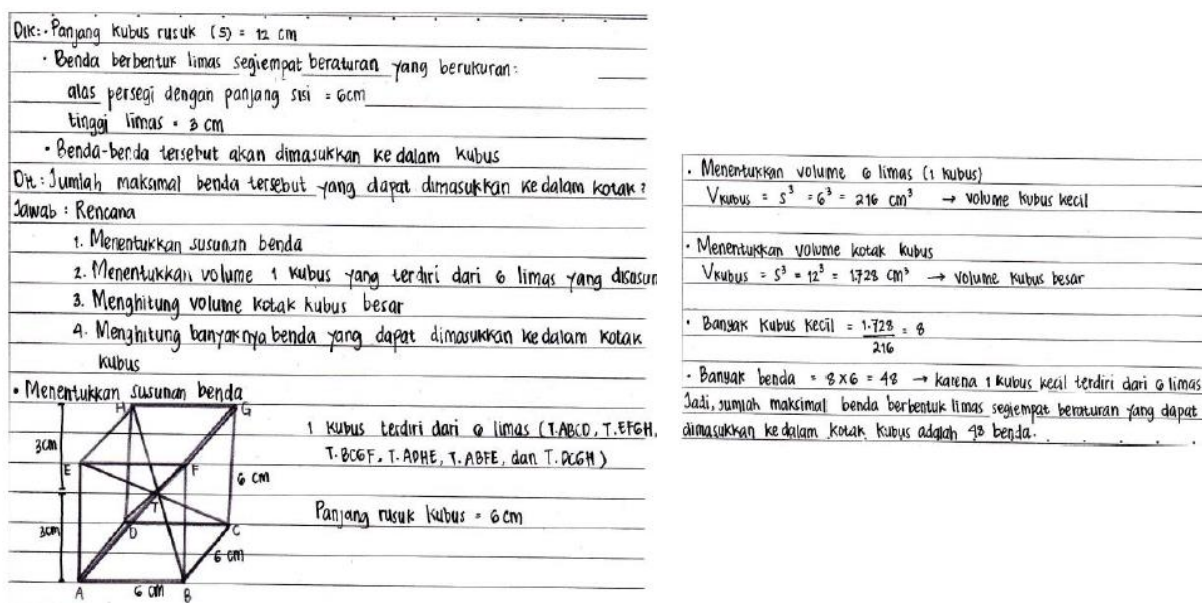 Dik: · Panjang kubus rusuk (s) = 12 cm
· Benda berbentuk limas segiempat beraturan yang berukuran:
alas persegi dengan panjang sisi = 6cm
tinggi limas = 3 cm
· Benda-benda tersebut akan dimasukkan ke dalam kubus
Dit: Jumlah maksimal benda tersebut yang dapat dimasukkan ke dalam kotak?
Jawab : Rencana
1. Menentukkan susunan benda
2. Menentukkan volume 1 kubus yang terdiri dari 6 limas yang disusun
3. Menghitung volume kotak kubus besar
4. Menghitung banyaknya benda yang dapat dimasukkan ke dalam kotak
kubus
· Menentukkan susunan benda
H G
3cm
E F
6 cm
T
3cm
D C
6 cm
A 6 cm B
1 kubus terdiri dari 6 limas (T.ABCD, T.EFGH,
T.BCGF, T.ADHE, T.ABFE, dan T.DCGH)
Panjang rusuk kubus = 6cm
· Menentukkan volume 6 limas (1 kubus)
Vkubus = s³ = 6³ = 216 cm³ → volume kubus kecil
· Menentukkan volume kotak kubus
Vkubus = s³ = 12³ = 1.728 cm³ → volume kubus besar
· Banyak kubus kecil = 1.728 / 216 = 8
· Banyak benda = 8x6 = 48 → karena 1 kubus kecil terdiri dari 6 limas
Jadi, jumlah maksimal benda berbentuk limas segiempat beraturan yang dapat
dimasukkan ke dalam kotak kubus adalah 48 benda.